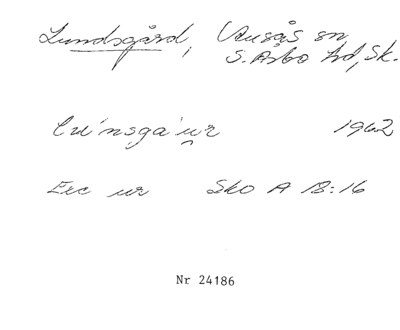 Lundsgård, Ausås sn
S. Åsbo hd, Sk.
1962
Exc ur Sko A 18:16
Nr 24186